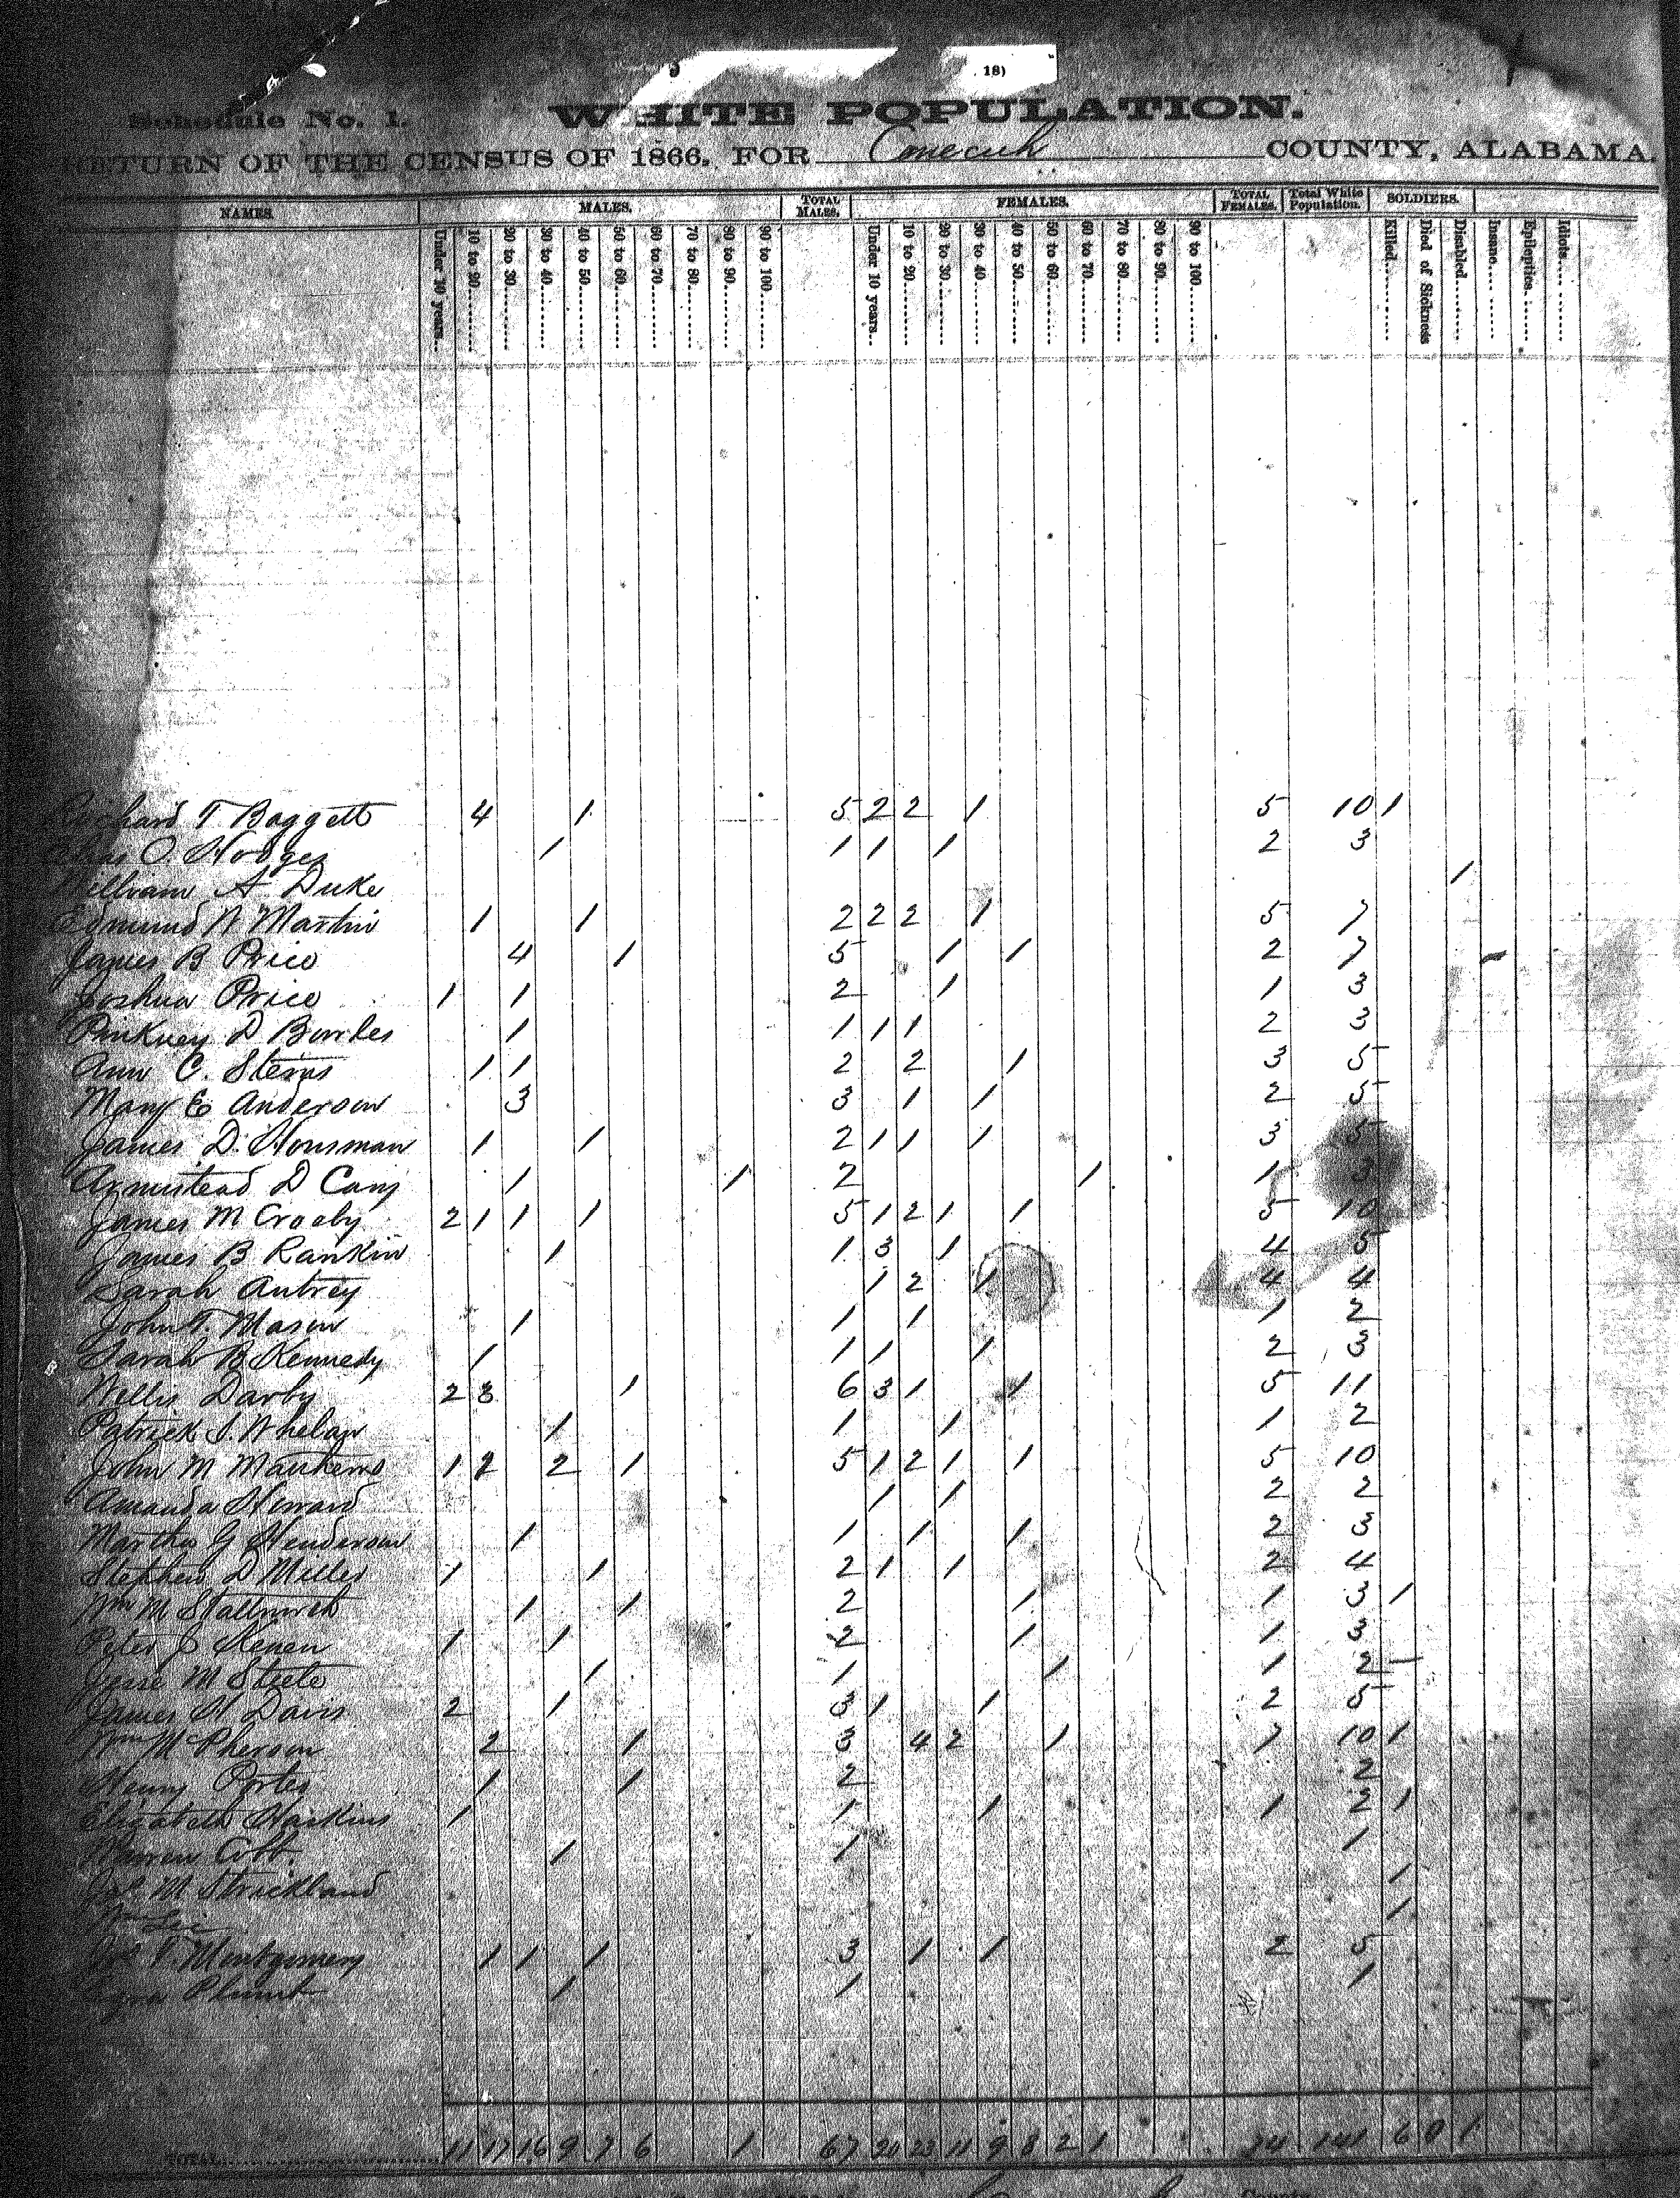 18)
Schedule No. 1. WHITE POPULATION.
RETURN OF THE CENSUS OF 1866, FOR Conecuh COUNTY, ALABAMA.
NAMES. MALES. TOTAL MALES. FEMALES. TOTAL FEMALES. Total White Population. SOLDIERS.
Under 10 years... 10 to 20 20 to 30 30 to 40 40 to 50 50 to 60 60 to 70 70 to 80 80 to 90 90 to 100 Under 10 years... 10 to 20 20 to 30 30 to 40 40 to 50 50 to 60 60 to 70 70 to 80 80 to 90 90 to 100 Killed Died of Sickness Disabled Insane Epileptics Idiots
Richard T Baggett 4 1 5 2 2 1 5 10 1
O. Hodges 1 1 1 1 2 3
William A Duke 1
Edmund N Martin 1 1 2 2 2 1 5 7
James B Price 4 1 5 1 1 2 7
Joshua Price 1 1 2 1 1 3
Pinkney D Bowles 1 1 1 1 2 3
Ann C. Sterns 1 1 2 2 1 3 5
Mary E Anderson 3 3 1 1 2 5
James D. Housman 1 1 2 1 1 1 3 5
Armistead D Cary 1 1 2 1 1 3
James M Crosby 2 1 1 1 5 1 2 1 1 5 10
James B Rankin 1 1 3 1 4 5
Sarah Autrey 1 2 1 4 4
John T. Mason 1 1 1 1 2
Sarah B Kennedy 1 1 1 1 2 3
Willis Darby 2 3 1 6 3 1 1 5 11
Patrick J. Whelan 1 1 1 1 2
John M Matthews 1 2 2 1 5 1 2 1 1 5 10
Amanda Howard 1 1 2 2
Martha G Henderson 1 1 1 1 2 3
Stephen D Miller 1 1 2 1 1 2 4
Wm M Stallworth 1 1 2 1 1 3 1
Peter J 1 1 2 1 1 3
Jesse M Steele 1 1 1 1 2
James H Davis 2 1 3 1 1 2 5
Wm McPherson 2 1 3 4 2 1 7 10 1
Henry Porter 1 1 2 2
Elizabeth Haskins 1 1 1 1 2 1
Cobb. 1 1 1
M Strickland 1
Wm Lee 1
Montgomery 1 1 1 3 1 1 2 5
1 1 1
TOTAL 11 17 16 9 7 6 1 67 20 23 11 9 8 2 1 74 141 6 0 1
County